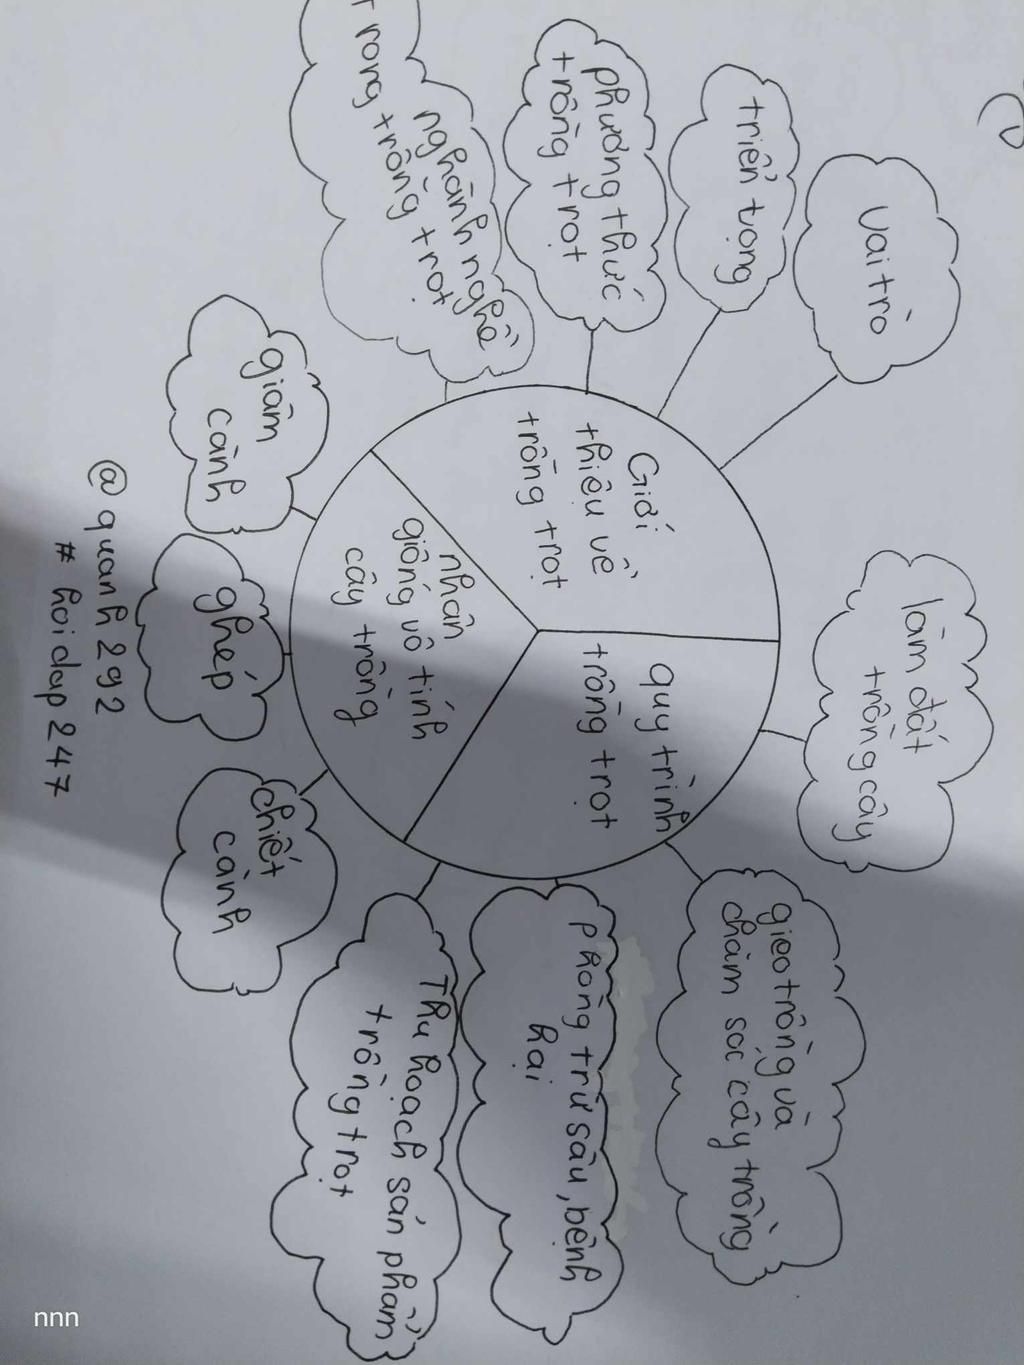 vai trò
triển tọng
phương thức
trồng trọt
nghành nghề
trong trồng trọt
Giới
thiệu về
trồng trọt
làm đất
trồng cây
quy trình
trồng trọt
gieo trồng và
chăm sóc cây trồng
phòng trừ sâu, bệnh
hại
Thu hoạch sản phẩm
trồng trọt
nhân
giống vô tính
cây trồng
giâm
cành
ghép
chiết
cành
@quanh292
# hoidap247
nnn